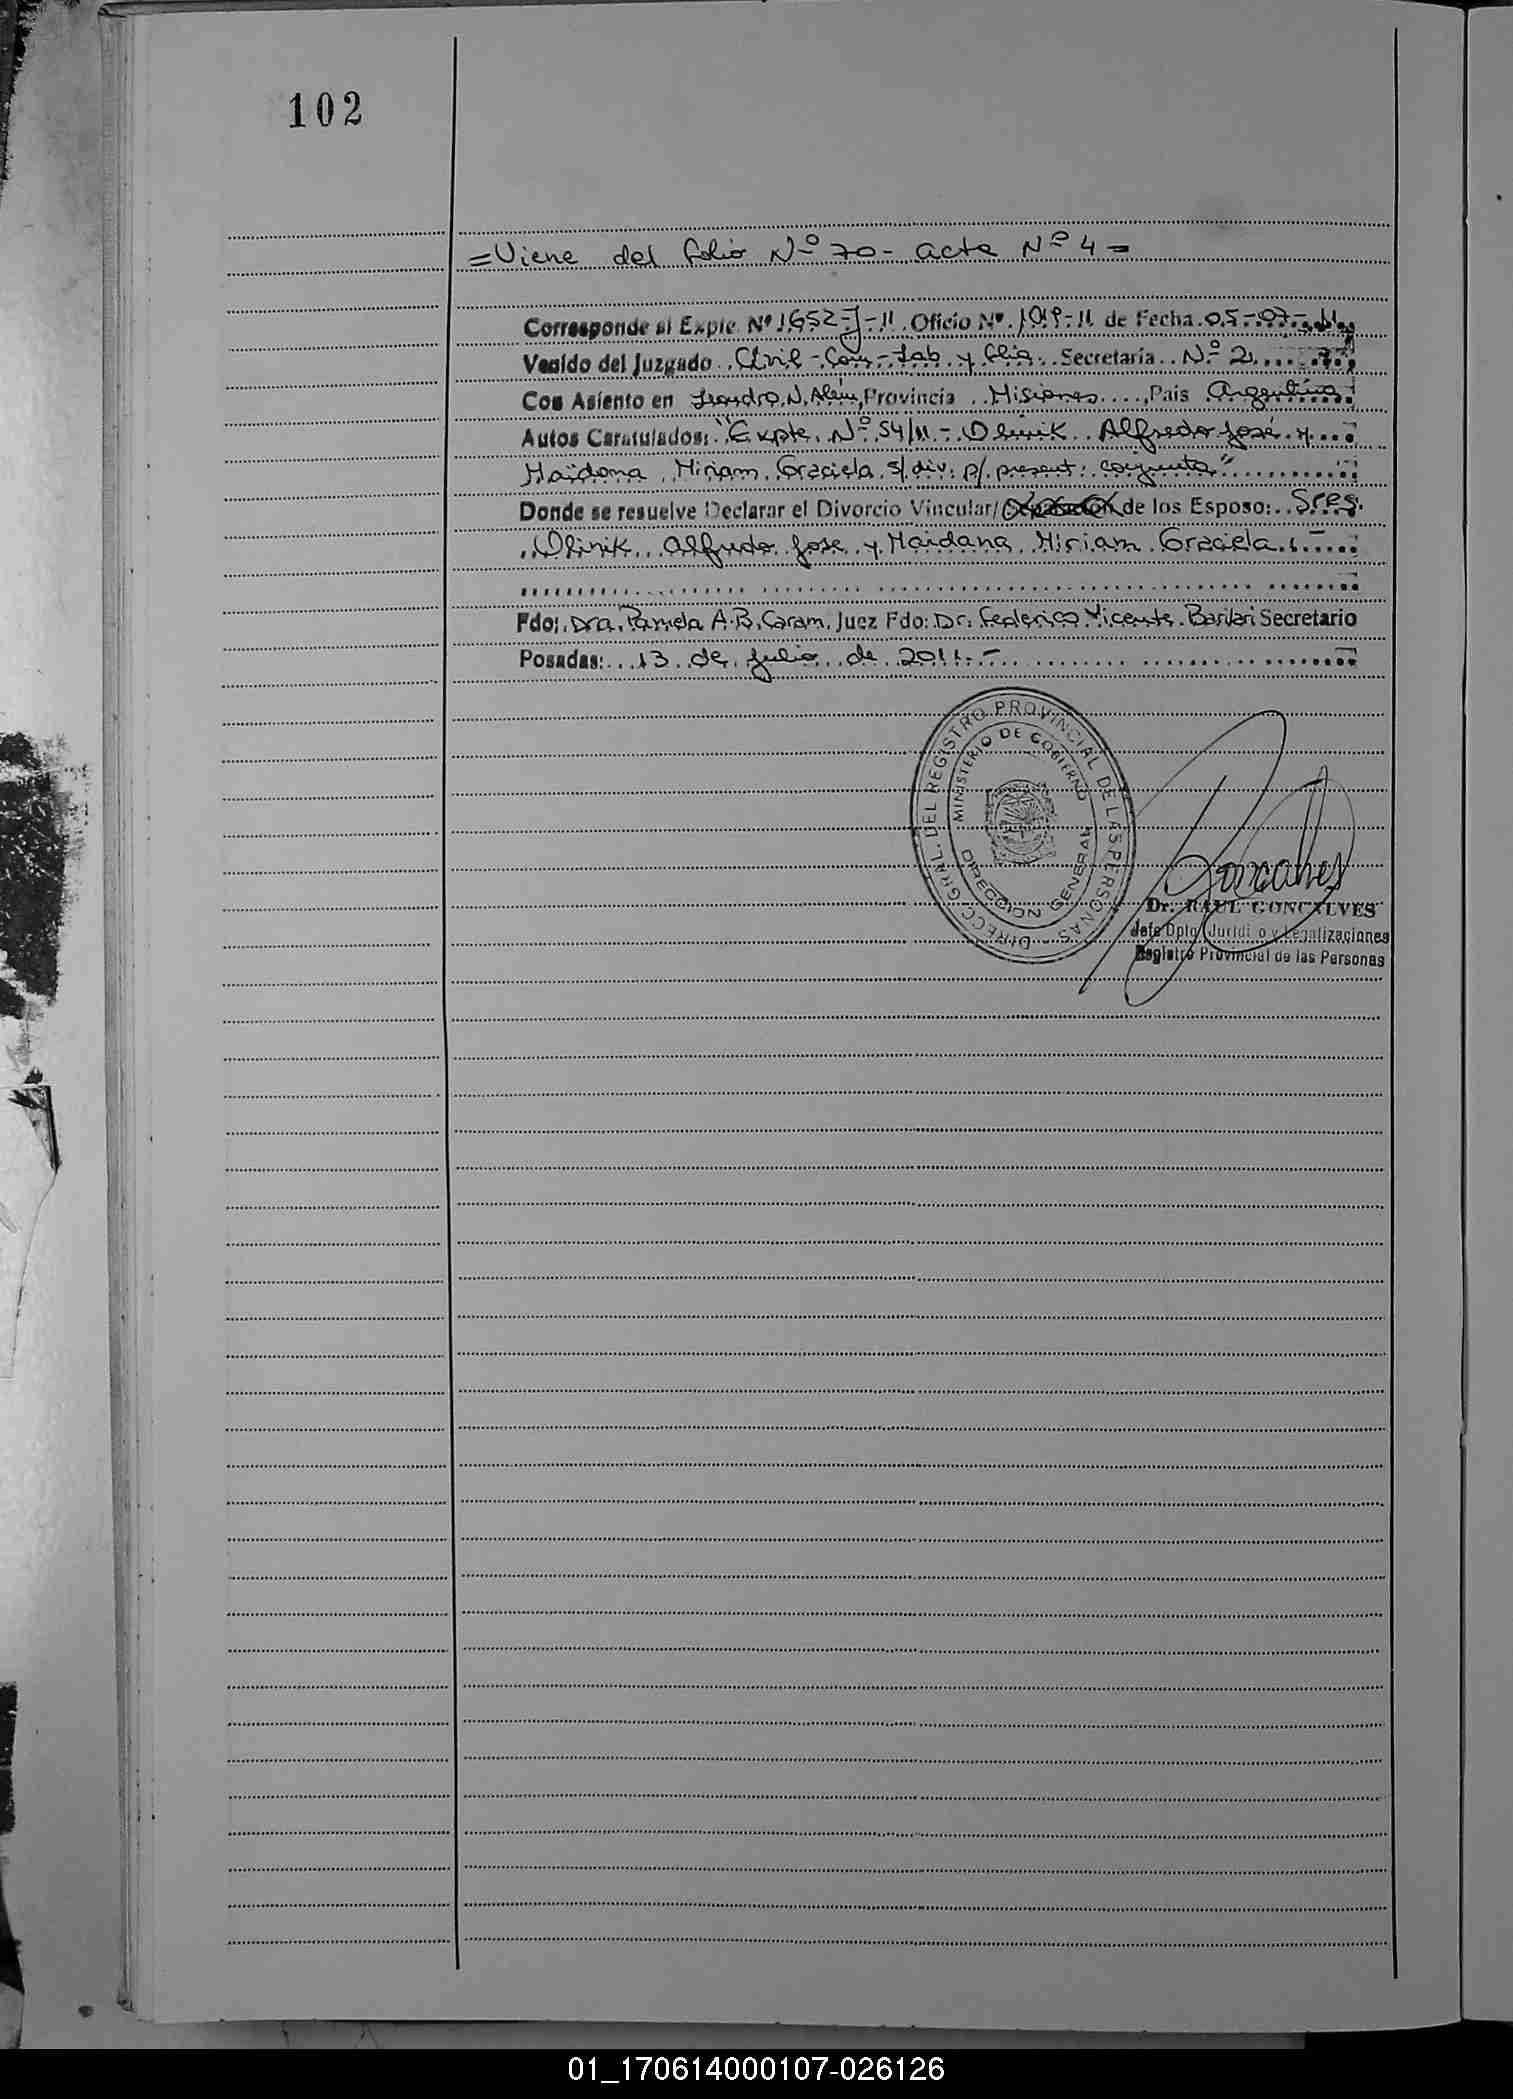 102
= Viene del folio Nº 70 - acta Nº 4 =
Corresponde al Expte. Nº 1652-J-11 Oficio Nº 1019-11 de Fecha 05-07-11
Venido del Juzgado Civil - Com - Lab y flia. Secretaría Nº 2
Con Asiento en Leandro N. Além, Provincia Misiones, País Argentina
Autos Caratulados: "Expte. Nº 54/11 - Olinik Alfredo José y
Maidana Miriam Graciela s/ div. p/ present. conjunta"
Donde se resuelve Declarar el Divorcio Vincular/ de los Esposo: Sres.
Olinik Alfredo José y Maidana Miriam Graciela. -
Fdo: Dra. Pamela A. B. Caram. Juez Fdo: Dr. Federico Vicente Barilari Secretario
Posadas: 13 de Julio de 2011. -
DIRECC. GRAL. DEL REGISTRO PROVINCIAL DE LAS PERSONAS
MINISTERIO DE GOBIERNO
DIRECCION GENERAL
Goncalves
Dr. RAUL GONCALVES
Jefe Dpto. Jurídico y Legalizaciones
Registro Provincial de las Personas
01_170614000107-026126